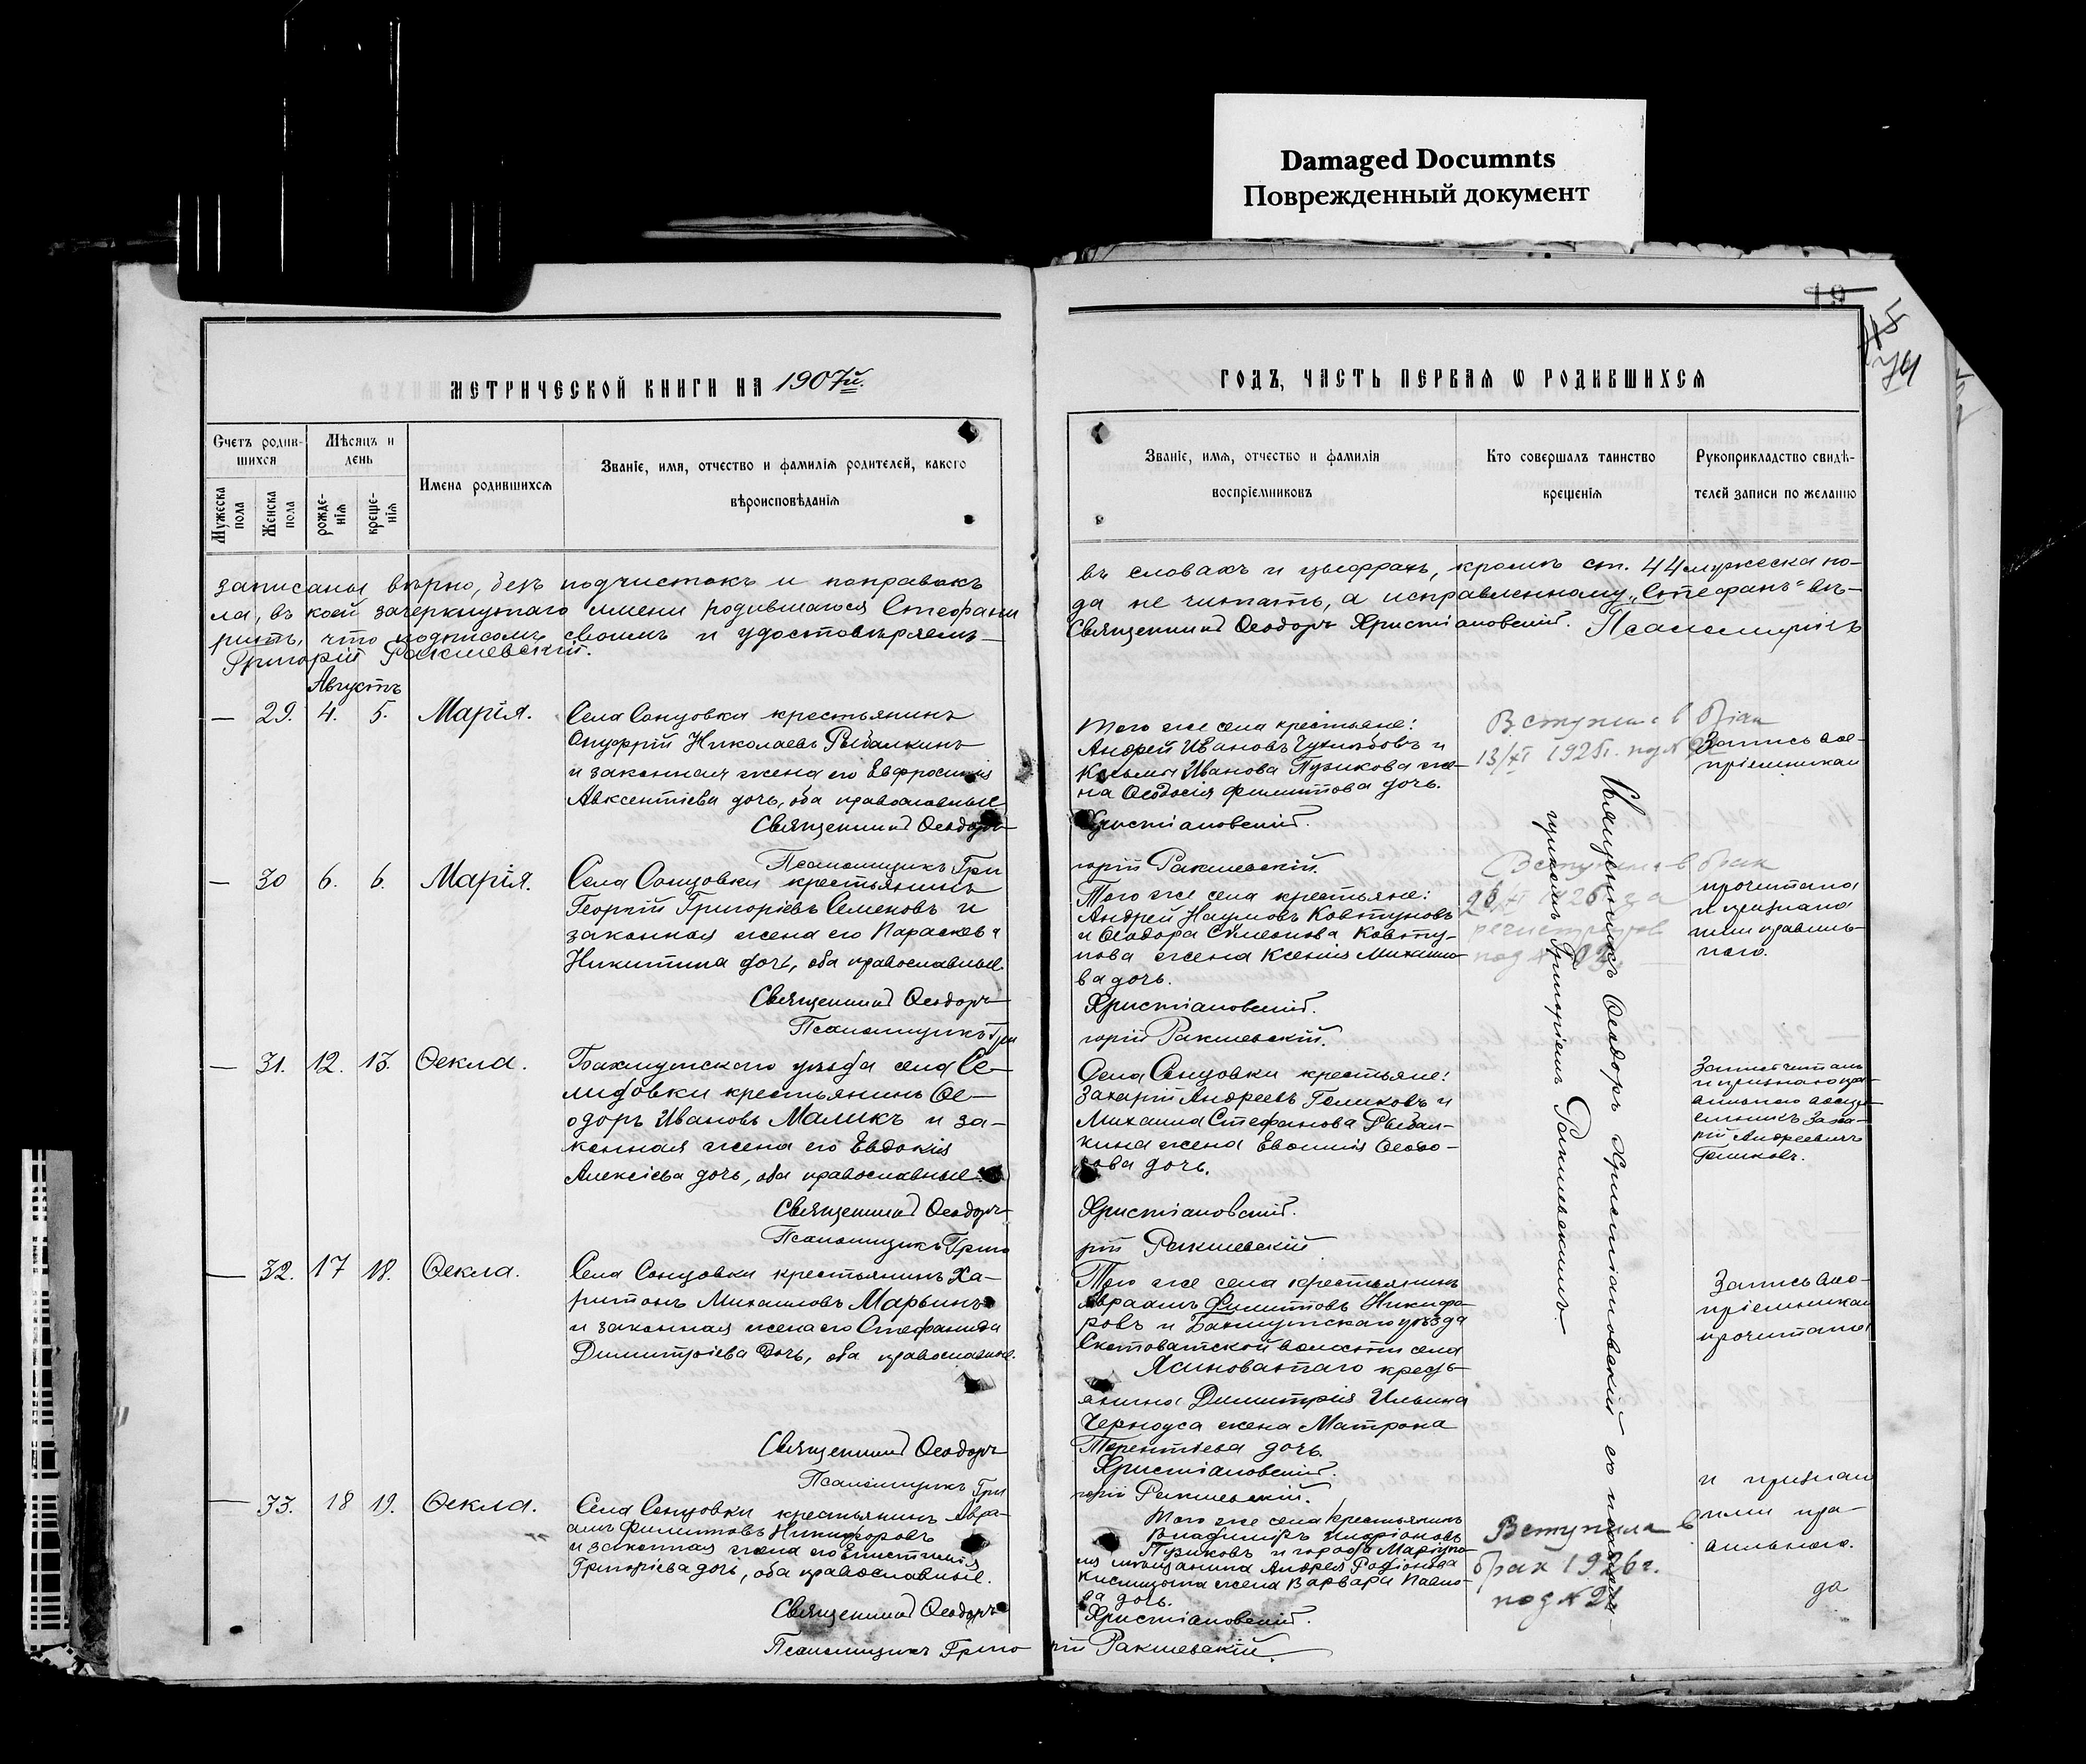 Damaged Documnts
Поврежденный документ
19
45
74
МЕТРИЧЕСКОЙ КНИГИ НА 1907й.
ГОДЪ, ЧАСТЬ ПЕРВАЯ Ѡ РОДИВШИХСЯ
Счетъ родив-
шихся
Мужеска пола
Женска пола
Мѣсяцъ и
день
рожде-
нія
креще-
нія
Имена родившихся
Званіе, имя, отчество и фамилія родителей, какого
вѣроисповѣданія
Званіе, имя, отчество и фамилія
воспріемниковъ
Кто совершалъ таинство
крещенія
Рукоприкладство свидѣ-
телей записи по желанію
записаны вѣрно, безъ подчистокъ и поправокъ
въ словахъ и цыфрахъ, кромѣ ст. 44 мужеска по-
ла, въ коей зачеркнутаго имени родившагося Стефани
да не читать, а исправленному „Стефанъ" вѣ-
рить, что подписомъ своимъ и удостовѣряемъ
Священникъ Ѳеодоръ Христіановскій. Псаломщикъ
Григорій Ракшевскій.
Августъ
— 29. 4. 5. Марія.
Села Сонцовки крестьянинъ
Онуфрій Николаевъ Рыбалкинъ
и законная жена его Евфросинія
Авксентіева дочь, оба православные
Священникъ Ѳеодоръ
Псаломщикъ Гри
Того же села крестьяне:
Андрей Ивановъ и
Козьмы Иванова Пузикова же-
на Ѳеодосія Филиппова дочь.
Христіановскій.
горій Ракшевскій.
Вступила в брак
13/XI 1925г. под №
Запись вос-
пріемникам
— 30 6. 6. Марія.
Села Сонцовки крестьянинъ
Георгій Григоріевъ Семеновъ и
законная жена его Параскева
Никитина дочь, оба православные.
Священникъ Ѳеодоръ
Псаломщикъ Гри
Того же села крестьяне:
Андрей Наумовъ Ковтуновъ
и Ѳеодора Симеонова Ковту-
нова жена Ксенія
ва дочь.
Христіановскій.
горій Ракшевскій.
Вступила в брак
1926
под №
прочитана
и признана
ими правиль-
ною.
— 31. 12. 13. Ѳекла.
Бахмутского уѣзда села Се-
лидовки крестьянинъ Ѳе-
одоръ Ивановъ Маликъ и за-
конная жена его Евдокія
Алексіева дочь, оба православные.
Священникъ Ѳеодоръ
Псаломщикъ Григо
Села Сонцовки крестьяне:
Захарій Андреевъ Голиковъ и
Михаила Стефанова Рыбал-
кина жена Евѳимія Ѳеодо-
рова дочь.
Христіановскій.
рій Ракшевскій
Запись читалъ
Андреевичъ
Голиковъ.
— 32. 17 18. Ѳекла.
Села Сонцовки крестьянинъ Ха-
ритонъ Михаиловъ Марьинъ
и законная жена его Стефанида
Димитріева дочь, оба православные.
Священникъ Ѳеодоръ
Псаломщикъ Гри
Того же села крестьянинъ
Авраамъ Филипповъ Никифо-
ровъ и Бахмутскаго уѣзда
Скотоватской волости села
Ясиноватаго кресть-
янина Димитрія Ильина
Черноуса жена Матрона
Терентіева дочь.
Христіановскій.
горій Ракшевскій.
Запись вос-
пріемникам
прочитана
и признан
ими пра-
вильною.
да
— 33. 18 19. Ѳекла.
Села Сонцовки крестьянинъ Авра-
амъ Филипповъ Никифоровъ
и законная жена его Епистимія
Григоріева дочь, оба православные.
Священникъ Ѳеодоръ
Псаломщикъ Григо
Того же села крестьянинъ
Владиміръ Иларіоновъ
Пузиковъ и города Маріупо-
ля мѣщанина Андрея Родіонова
жена Варвара Павло-
ва дочь.
Христіановскій.
рій Ракшевскій.
Вступила в
брак 1926г.
под № 24
Священникъ Ѳеодоръ Христіановскій съ псалом-
щикомъ Григоріемъ Ракшевскимъ.